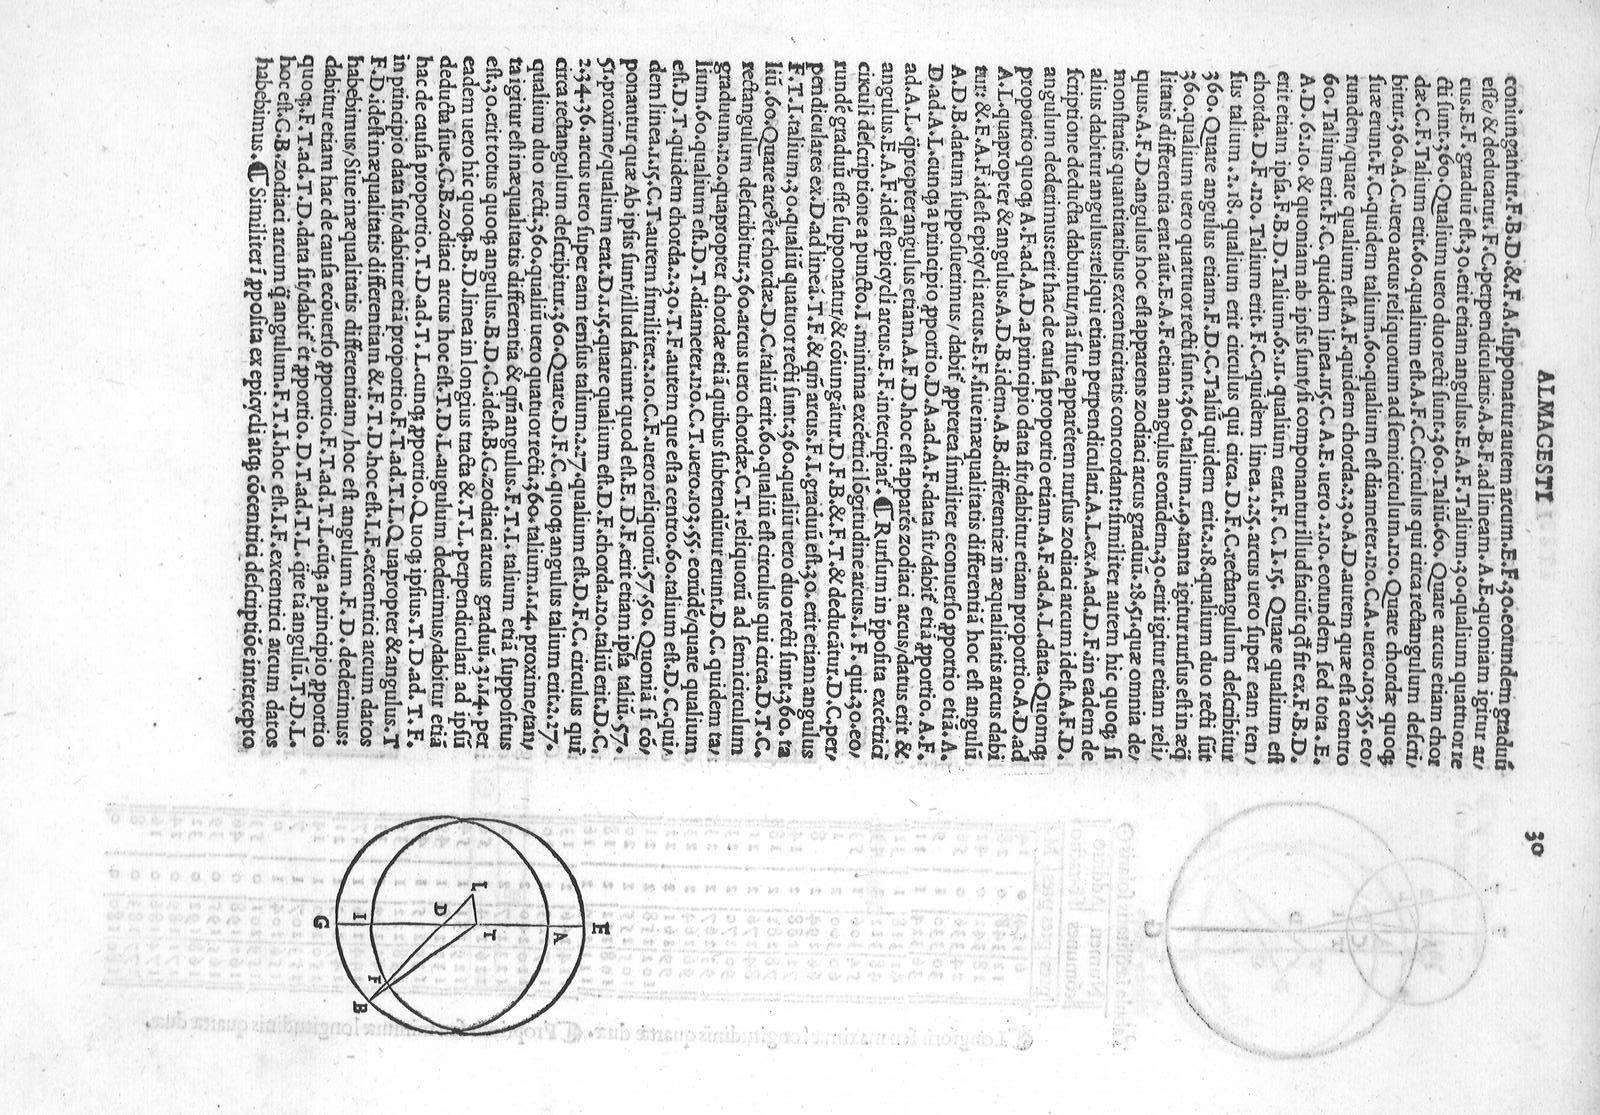 ALMAGESTI 30
coniungatur.F.B.D.&.F.A.supponatur autem arcum.E.F.30.eorundem graduũ
esse/&deducatur.F.C.perpendicularis.A.B.F.ad lineam.A.E.quoniam igitur ar/
cus.E.F.graduũ est.30.erit etiam angulus.E.A.F.Talium.30.qualium quattuor re
cti sunt.360.Qualium uero duo recti sunt.360.Taliũ.60.Quare arcus etiam chor
dæ.C.F.Talium erit.60.qualium est.A.F.C.Circulus qui circa rectangulum descri/
bitur.360.A.C.uero arcus reliquorum ad semicirculum.120.Quare chordæ quoq;
suæ erunt.F.C.quidem talium.60.qualium est diameter.120.C.A.uero.103.55.eo/
rundem/quare qualium est.A.F.quidem chorda.2.30.A.D.autem quæ est a centro
60.Talium erit.F.C.quidem linea.1.15.C.A.E.uero.2.10.eorundem sed tota.E.
A.D.62.10.& quoniam ab ipsis sunt/si componantur illud faciũt qđ fit ex.F.B.D.
erit etiam ipsa.F.B.D.Talium.62.11.qualium erat.F.C.1.15.Quare qualium est
chorda.D.F.120.Talium erit.F.C.quidem linea.2.25.arcus uero super eam ten/
sus talium.2.18.qualium erit circulus qui circa.D.F.C.rectangulum describitur
360.Quare angulus etiam.F.D.C.Taliũ quidem erit.2.18.qualium duo recti sũt
360.qualium uero quattuor recti sunt.360.talium.1.9.tanta igitur rursus est in æq̃
litatis differentia erat aũt.E.A.F.etiam angulus eorũdem.30.erit igitur etiam reli/
quus.A.F.D.angulus hoc est apparens zodiaci arcus graduũ.28.51.quæ omnia de/
monstratis quantitatibus excentricitatis concordant:similiter autem hic quoq; si
alius dabitur angulus:reliqui etiam perpendiculari.A.L.ex.A.ad.D.F.in eadem de
scriptione deducta dabuntur/nã siue apparẽtem rursus zodiaci arcum idest.A.F.D.
angulum dederimus:erit hac de causa proportio etiam.A.F.ad.A.L.data.Quomq;
proportio quoq;.A.F.ad.A.D.a principio data sit/dabitur etiam proportio.A.D.ad
A.L.quapropter & angulus.A.D.B.idem.A.B.differentiæ in æqualitatis arcus dabi
tur:&.E.A.F.idest epicycli arcus.E.F.siue inæqualitatis differentiã hoc est angulũ
A.D.B.datum supposuerimus/dabit̃ ꝓpterea similiter econuerso ꝓportio etiã.A.
D.ad.A.L.cumq; a principio ꝓportio.D.A.ad.A.F.data sit/dabit̃ etiã ꝓportio.A.F.
ad.A.L.q̃propter angulus etiam.A.F.D.hoc est apparẽs zodiaci arcus/datus erit &
angulus.E.A.F.idest epicycli arcus.E.F.intercipiat̃.¶Rursum in ꝓposita excẽtrici
circuli descriptione a puncto.I.minima excẽtrici lõgitudine arcus.I.F.qui.30.eo/
rundẽ graduũ esse supponatur/& cõiungãtur.D.F.B.&.F.T.& deducãtur.D.C.per/
pendiculares ex.D.ad lineã.T.F.& qm̃ arcus.F.I.graduũ est.30.erit etiam angulus
F.T.I.talium.30.qualiũ quatuor recti sunt.360.qualiũ uero duo recti sunt.360.ta
liũ.60.Quare arc9 et chordæ.D.C.taliũ erit.60.qualiũ est circulus qui circa.D.T.C.
rectangulum describitur.360.arcus uero chordæ.C.T.reliquorũ ad semicirculum
graduum.120.quapropter chordæ etiã quibus subtendũtur erunt.D.C.quidem ta/
lium.60.qualium est.D.T.diameter.120.C.T.uero.103.55.eorũdẽ/quare qualium
est.D.T.quidem chorda.2.30.T.F.autem que est a centro.60.talium est.D.C.qui/
dem linea.1.15.C.T.autem similiter.2.10.C.F.uero reliquorũ.57.50.Quoniã si cõ/
ponantur quæ Ab ipsis sunt/illud faciunt quod est.E.D.F.erit etiam ipsa taliũ.57.
51.proxime/qualium erat.D.1.15.quare qualium est.D.F.chorda.120.taliũ erit.D.C.
2.34.36.arcus uero super eam tensus talium.2.27.qualium est.D.F.C.circulus qui
circa rectangulum describitur.360.Quare.D.F.C.quoq; angulus talium erit.2.27.
qualium duo recti.360.qualiũ uero quatuor recti.360.talium.1.14.proxime/tan/
ta igitur est inæqualitatis differentia & qm̃ angulus.F.T.I.talium etiã suppositus
est.30.erit totus quoq; angulus.B.D.G.idest.B.G.zodiaci arcus graduũ.31.14.per
eadem uero hic quoq;.B.D.linea in longius tracta &.T.L.perpendiculari ad ipsũ
deducta siue.G.B.zodiaci arcus hoc est.T.D.L.angulum dederimus/dabitur etiã
hac de causa proportio.T.D.ad.T.L.cunq; ꝓportio.Quoq; ipsius.T.D.ad.T.F.
in principio data sit/dabitur etiã proportio.F.T.ad.T.L.Quapropter & angulus.T
F.D.idest inæqualitatis differentiam &.F.T.D.hoc est.I.F.excentrici arcum datos
habebimus/Siue inæqualitatis differentiam/hoc est angulum.F.D.dederimus:
dabitur etiam hac de causa ecõuerso ꝓportio.F.T.ad.T.L.cũq; a principio ꝓportio
quoq;.F.T.ad.T.D.data sit/dabit̃ et ꝓportio.D.T.ad.T.L.q̃re tã angulũ.T.D.L.
hoc est.G.B.zodiaci arcum q̃ angulum.F.T.I.hoc est.I.F.excentrici arcum datos
habebimus.¶Similiter ĩ ꝓposita ex epicycli atq; cõcentrici descriptiõe intercepto
E
A
T
L
D
I
G
F
B